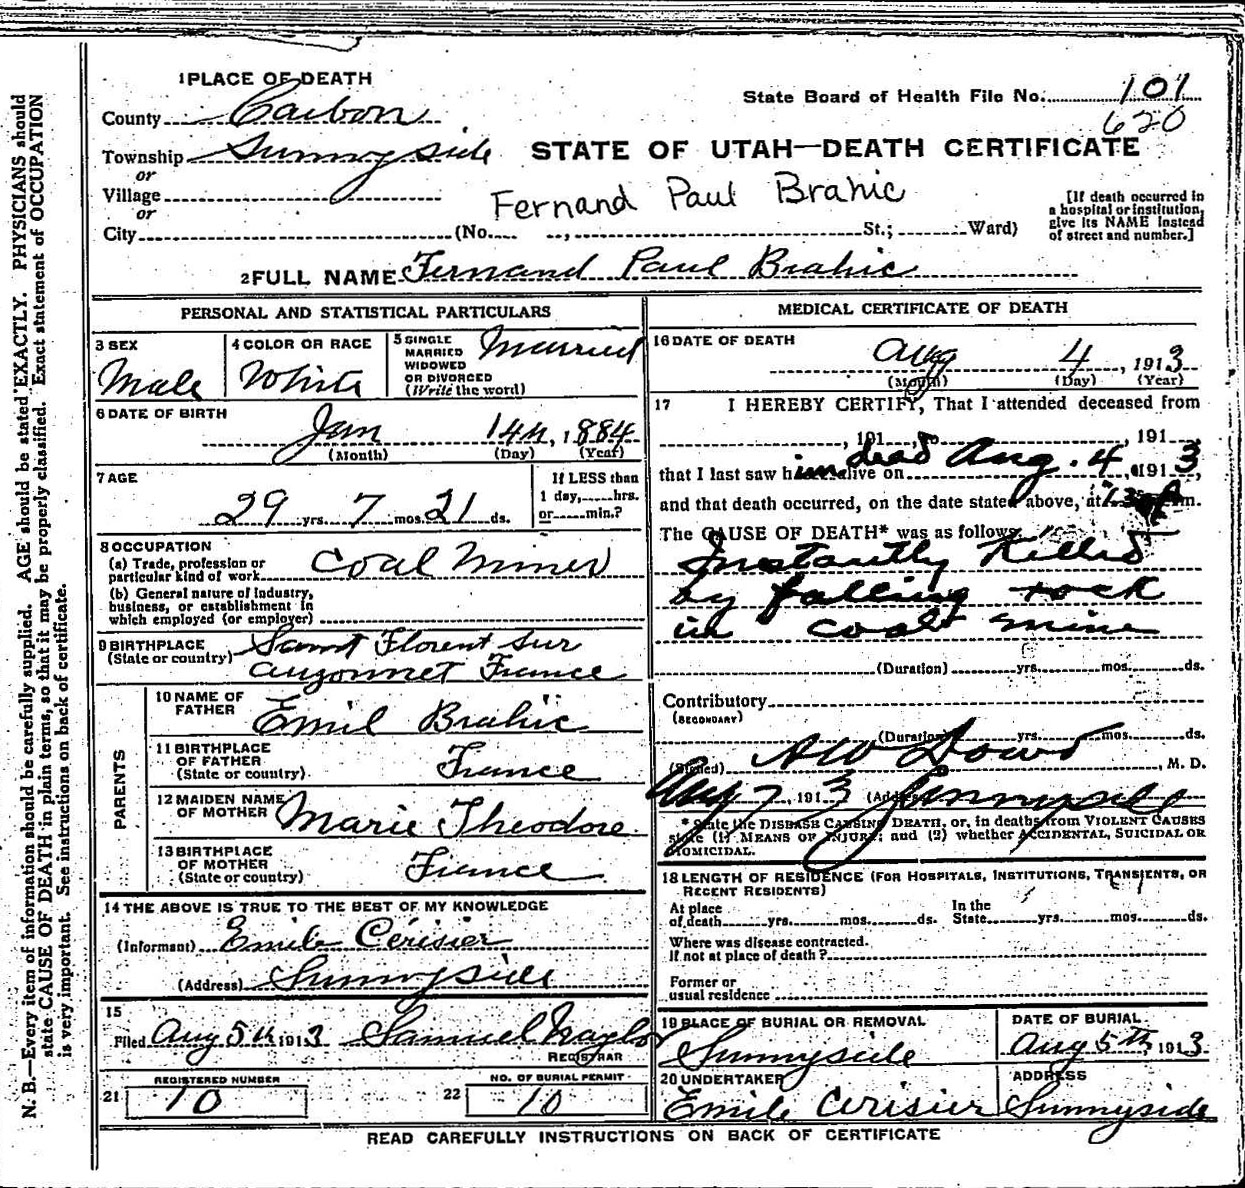 1 PLACE OF DEATH
County Carbon
State Board of Health File No. 101
620
Township Sunnyside
STATE OF UTAH—DEATH CERTIFICATE
or
Village
Fernand Paul Brahic
or
City (No. St.; Ward)
[If death occurred in a hospital or institution, give its NAME instead of street and number.]
2 FULL NAME Fernand Paul Brahic
PERSONAL AND STATISTICAL PARTICULARS
3 SEX
Male
4 COLOR OR RACE
White
5 SINGLE
MARRIED
WIDOWED
OR DIVORCED
(Write the word)
Married
6 DATE OF BIRTH
Jan 14th, 1884
(Month) (Day) (Year)
7 AGE
29 yrs. 7 mos. 21 ds.
If LESS than
1 day, hrs.
or min.?
8 OCCUPATION
(a) Trade, profession or
particular kind of work Coal Miner
(b) General nature of industry,
business, or establishment in
which employed (or employer)
9 BIRTHPLACE
(State or country)
Saint Florent sur
auzonnet France
PARENTS
10 NAME OF
FATHER
Emil Brahic
11 BIRTHPLACE
OF FATHER
(State or country)
France
12 MAIDEN NAME
OF MOTHER
Marie Theodore
13 BIRTHPLACE
OF MOTHER
(State or country)
France
14 THE ABOVE IS TRUE TO THE BEST OF MY KNOWLEDGE
(Informant) Emile Cérisier
(Address) Sunnyside
15
Filed Aug 5th 1913 Samuel Naylor
REGISTRAR
REGISTERED NUMBER
21 10
NO. OF BURIAL PERMIT
22 10
MEDICAL CERTIFICATE OF DEATH
16 DATE OF DEATH
Aug 4, 1913
(Month) (Day) (Year)
17 I HEREBY CERTIFY, That I attended deceased from
, 191 , to , 191
that I last saw him dead alive on Aug. 4, 1913,
and that death occurred, on the date stated above, at m.
The CAUSE OF DEATH* was as follows:
Instantly Killed
by falling rock
in coal mine
(Duration) yrs. mos. ds.
Contributory
(SECONDARY)
(Duration) yrs. mos. ds.
(Signed) A W Dowd, M. D.
Aug 7, 1913 (Address) Sunnyside
* State the DISEASE CAUSING DEATH, or, in deaths from VIOLENT CAUSES
state (1) MEANS OF INJURY; and (2) whether ACCIDENTAL, SUICIDAL OR
HOMICIDAL.
18 LENGTH OF RESIDENCE (FOR HOSPITALS, INSTITUTIONS, TRANSIENTS, OR
RECENT RESIDENTS)
At place
of death yrs. mos. ds.
In the
State yrs. mos. ds.
Where was disease contracted.
If not at place of death?
Former or
usual residence
19 PLACE OF BURIAL OR REMOVAL
Sunnyside
DATE OF BURIAL
Aug 5th, 1913
20 UNDERTAKER
Emile Cerisier
ADDRESS
Sunnyside
READ CAREFULLY INSTRUCTIONS ON BACK OF CERTIFICATE
N. B.—Every item of information should be carefully supplied. AGE should be stated EXACTLY. PHYSICIANS should
state CAUSE OF DEATH in plain terms, so that it may be properly classified. Exact statement of OCCUPATION
is very important. See instructions on back of certificate.